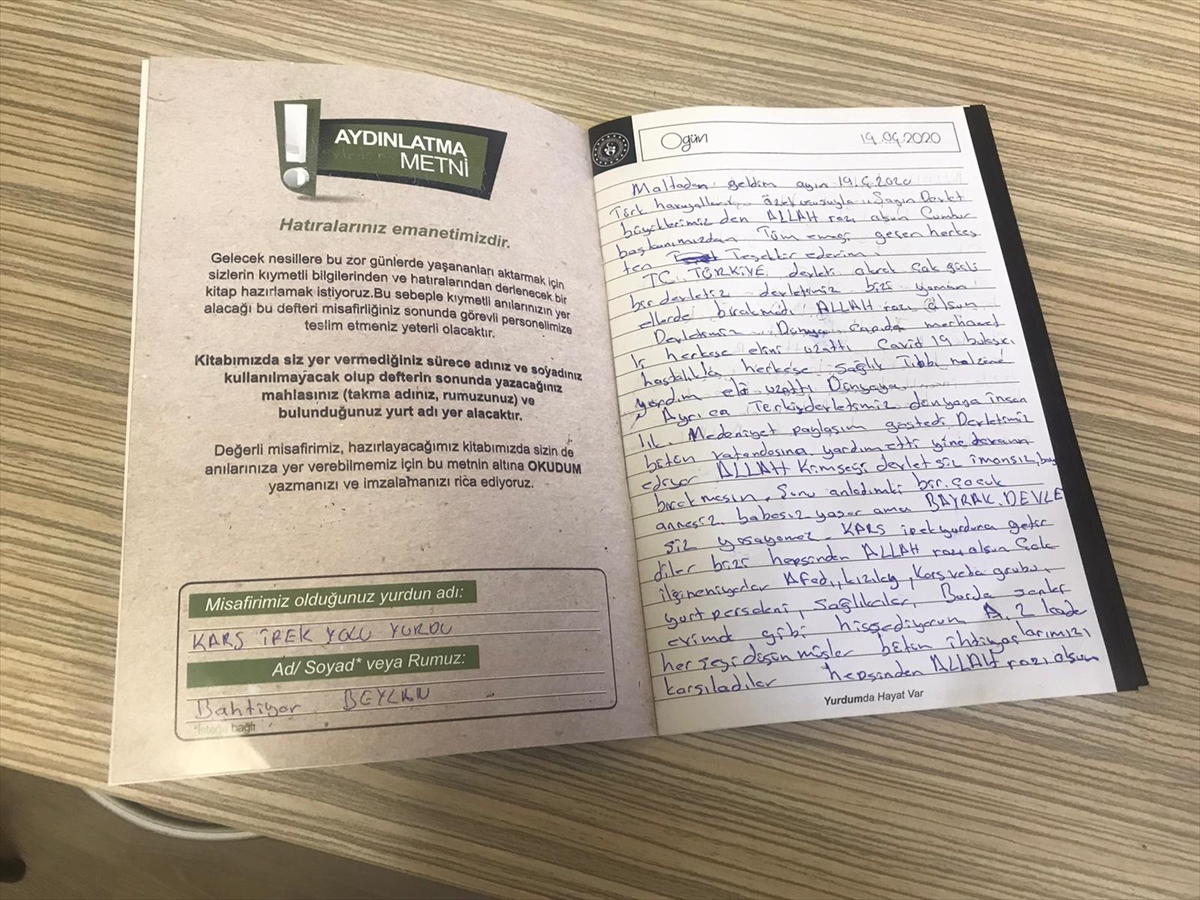 AYDINLATMA
METNİ
Hatıralarınız emanetimizdir.
Gelecek nesillere bu zor günlerde yaşananları aktarmak için
sizlerin kıymetli bilgilerinden ve hatıralarından derlenecek bir
kitap hazırlamak istiyoruz.Bu sebeple kıymetli anılarınızın yer
alacağı bu defteri misafirliğiniz sonunda görevli personelimize
teslim etmeniz yeterli olacaktır.
Kitabımızda siz yer vermediğiniz sürece adınız ve soyadınız
kullanılmayacak olup defterin sonunda yazacağınız
mahlasınız (takma adınız, rumuzunuz) ve
bulunduğunuz yurt adı yer alacaktır.
Değerli misafirimiz, hazırlayacağımız kitabımızda sizin de
anılarınıza yer verebilmemiz için bu metnin altına OKUDUM
yazmanızı ve imzalamanızı rica ediyoruz.
Misafirimiz olduğunuz yurdun adı:
KARS İPEK YOLU YURDU
Ad/ Soyad* veya Rumuz:
Bahtiyar BEYLAN
*İsteğe bağlı
O gün 19.04.2020
Maltadan geldim ayın 19.4.2020
Türk havayolları, Sayın Devlet
büyüklerimizden ALLAH razı olsun Cumhur
başkanımızdan Tüm emeği geçen herkes
ten Teşekkür ederim.
TC. TÜRKİYE devleti çok güçlü
bir devletiz devletimiz bizi yaman
ellerde bırakmadı ALLAH razı olsun
Devletimiz Dünya çapında merhamet
herkese elini uzattı Covid 19 bulaşıcı
hastalıkda herkese sağlık Tıbbi malzeme
yardım eli uzattı Dünyaya
Ayrıca devletimiz dünyaya insan
lık. Medeniyet paylaşım Devletimiz
bütün vatandaşına yardım etti yine devam
ediyor ALLAH kimseyi devletsiz imansız
bırakmasın. Şunu anladımki bir çocuk
annesiz babasız yaşar ama BAYRAK. DEVLE
siz yaşayamaz. KARS ipek yurduna getir
diler bizi hepsinden ALLAH razı olsun Çok
ilgileniyorlar Afad, kızılay, Kars grubu,
yurt personeli, sağlıkcılar, Burda
evimde gibi hissediyorum
her şeyi düşünmüşler bütün ihtiyaçlarımızı
karşıladılar hepsinden ALLAH razı olsun
Yurdumda Hayat Var